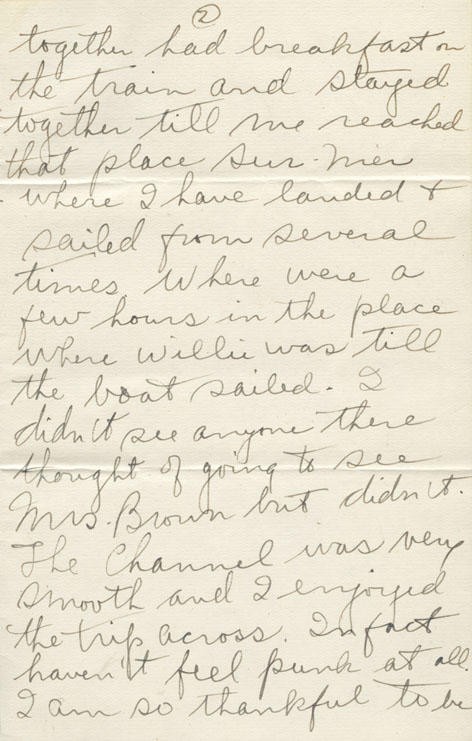 2
together had breakfast on
the train and stayed
together till we reached
that place sur-mer
where I have landed &
sailed from several
times. Where were a
few hours in the place
where Willie was till
the boat sailed. I
didn't see anyone there
thought of going to see
Mrs. Brown but didn't.
The Channel was very
smooth and I enjoyed
the trip across. In fact
haven't feel punk at all.
I am so thankful to be